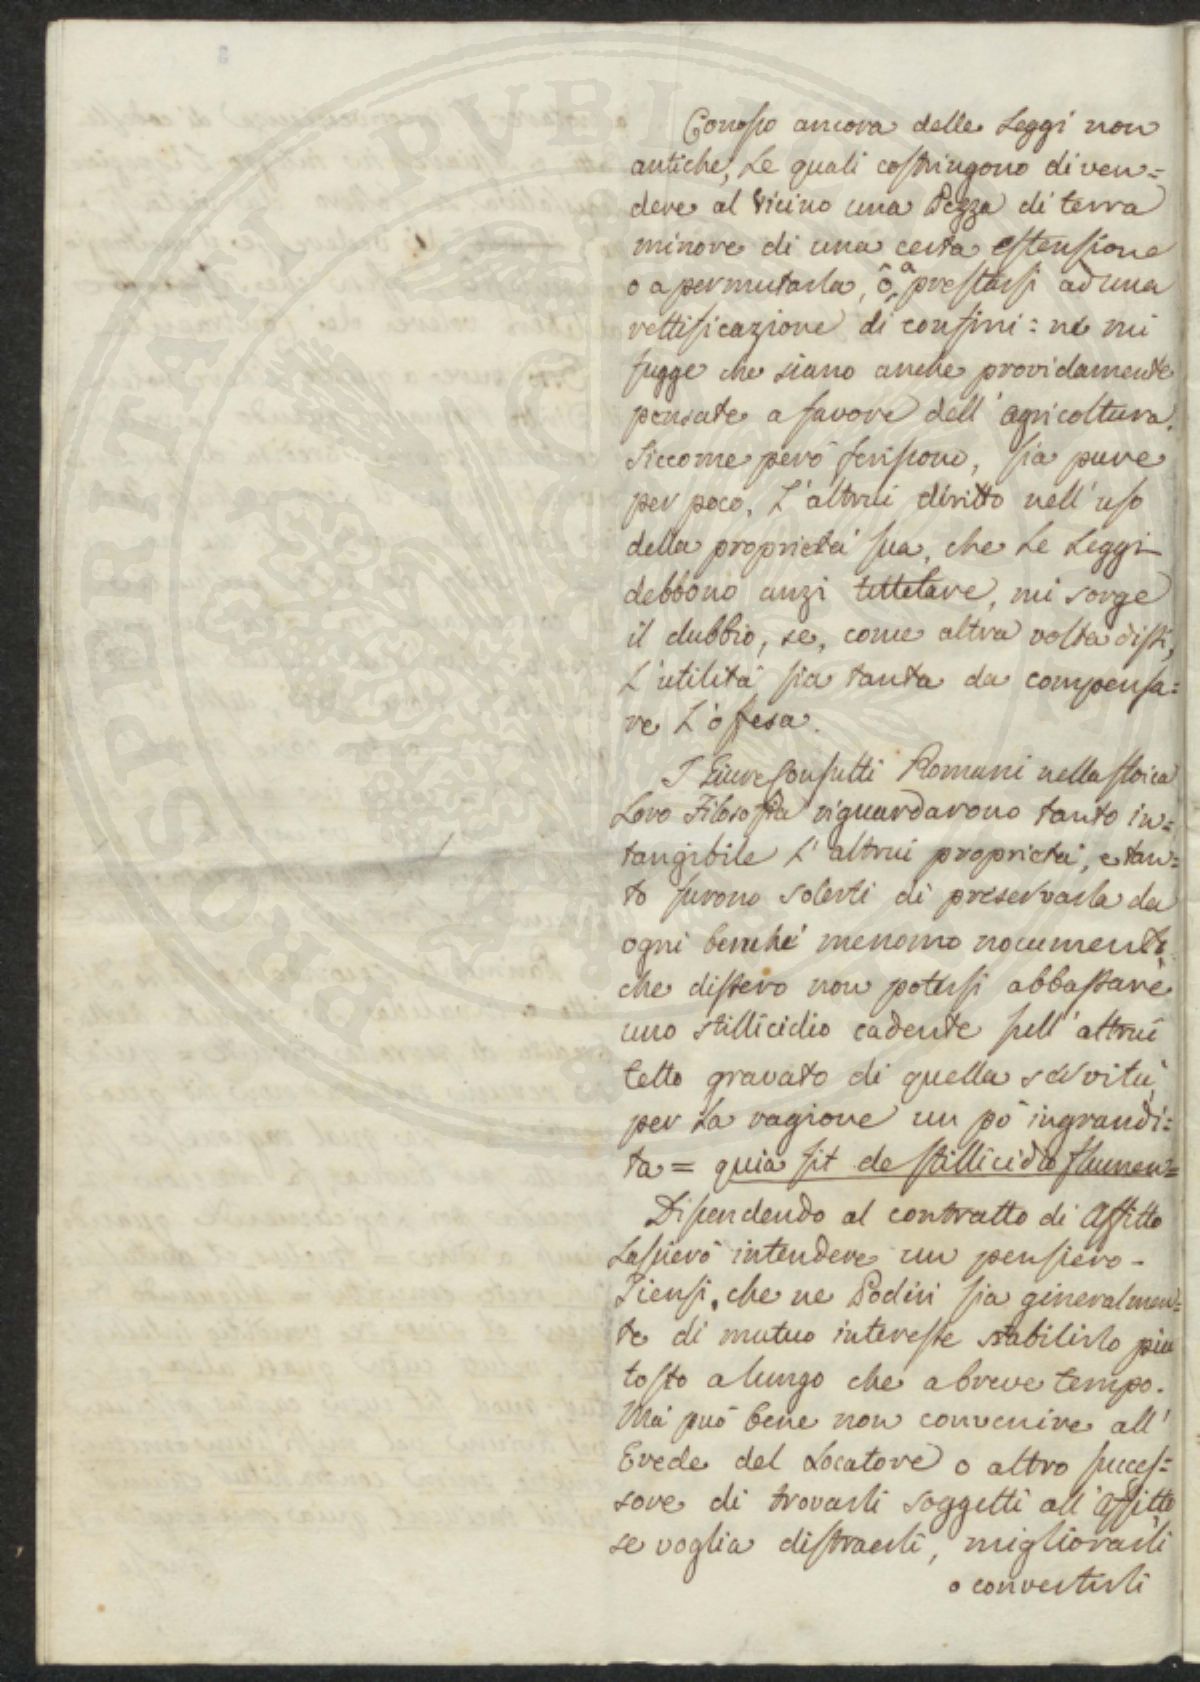 Conosco ancora delle Leggi non
antiche, Le quali costringono di ven=
dere al Vicino una Pezza di terra
minore di una certa estensione
o a permutarla, ô a prestarsi ad una
rettificazione di confini: ne mi
fugge che siano anche providamente
pensate a favore dell' agricoltura.
Siccome però feriscono, sia pure
per poco, L'altrui diritto nell'uso
della proprietà sua, che Le Leggi
debbono anzi tuttelare, mi sorge
il dubbio, se, come altra volta dissi,
L'utilità sia tanta da compensa=
re L'offesa.
I Giure Consulti Romani nella stoica
Loro Filosofia riguardarono tanto in=
tangibile L'altrui proprietà, e tan=
to furono solerti di preservarla da
ogni benché menomo nocumento,
che dissero non potersi abbassare
uno stillicidio cadente sull'altrui
tetto gravato di quella servitù,
per La ragione un pò ingrandi=
ta = quia fit de stillicidio flumen=
Discendendo al contratto di Affitto
Lascierò intendere un pensiero -
Tiensi, che ne Poderi sia generalmen=
te di mutuo interesse stabilirlo piu
tosto a lungo che a breve tempo.
Ma può bene non convenire all'
Erede del Locatore o altro succes=
sore di trovarli soggetti all'Affitto
se voglia distraerli, migliorarli
o convertirli
PROSPERITATI PVBLICAE